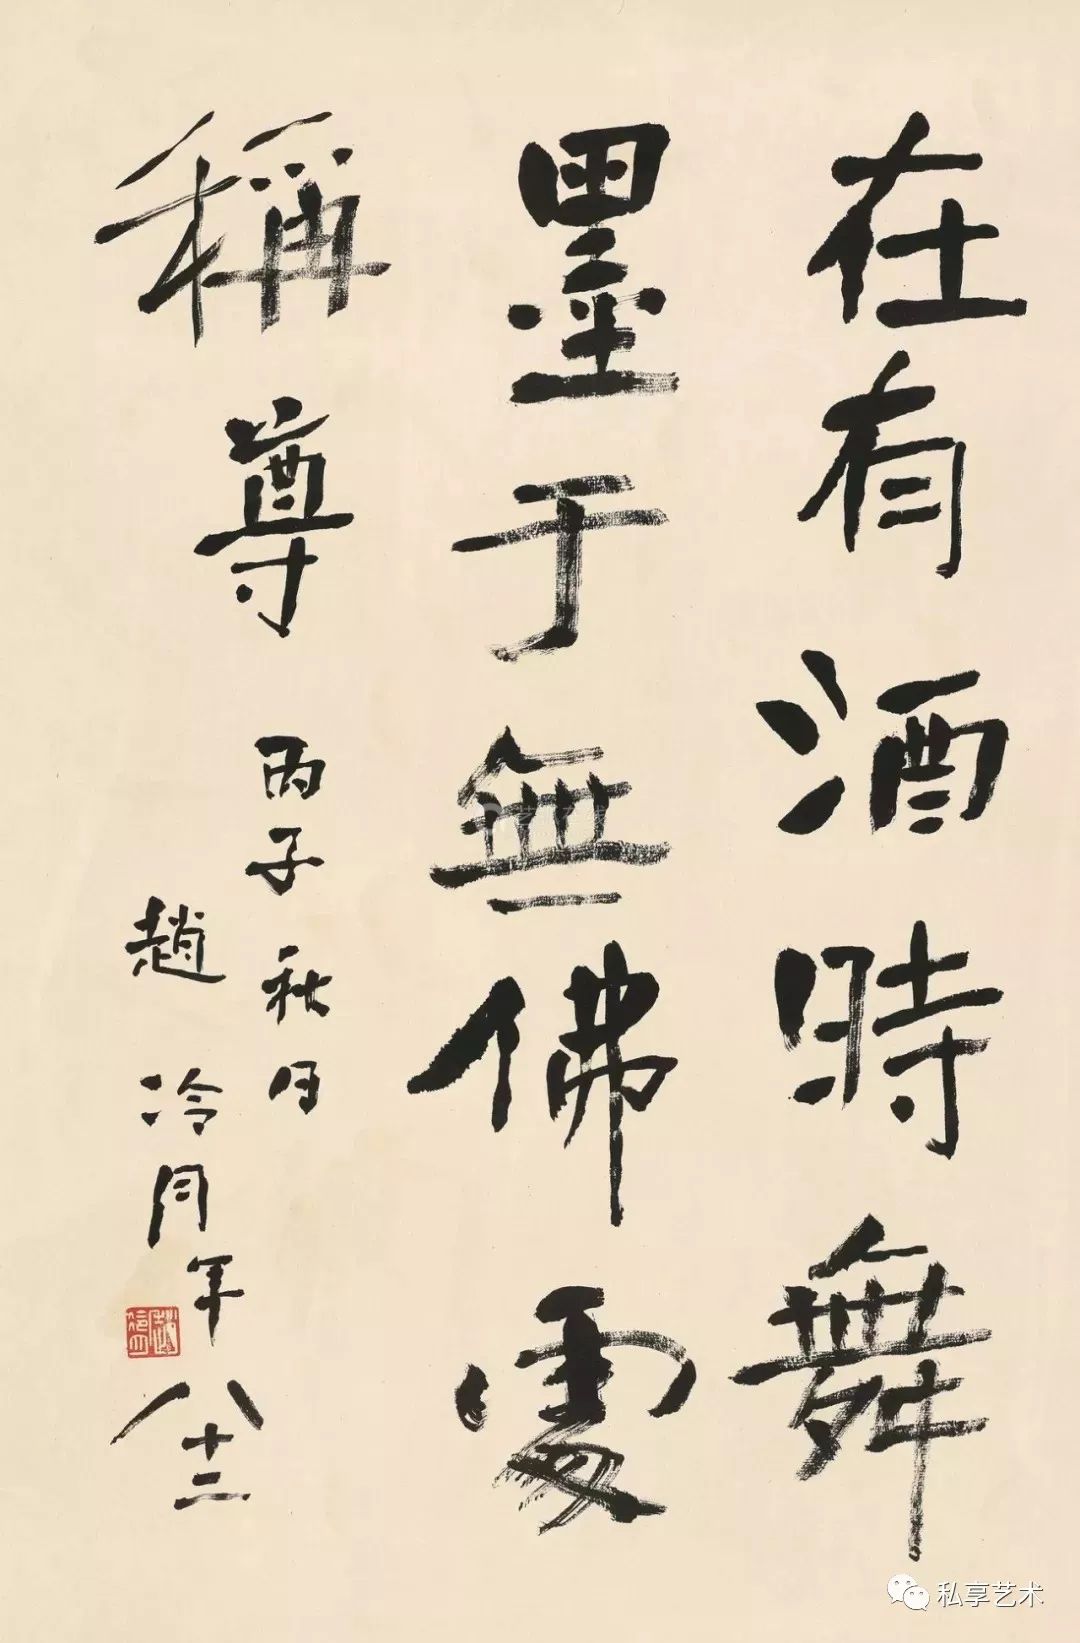 在有酒時舞
墨于無佛處
稱尊
丙子秋月
趙冷月年八十二
私享艺术